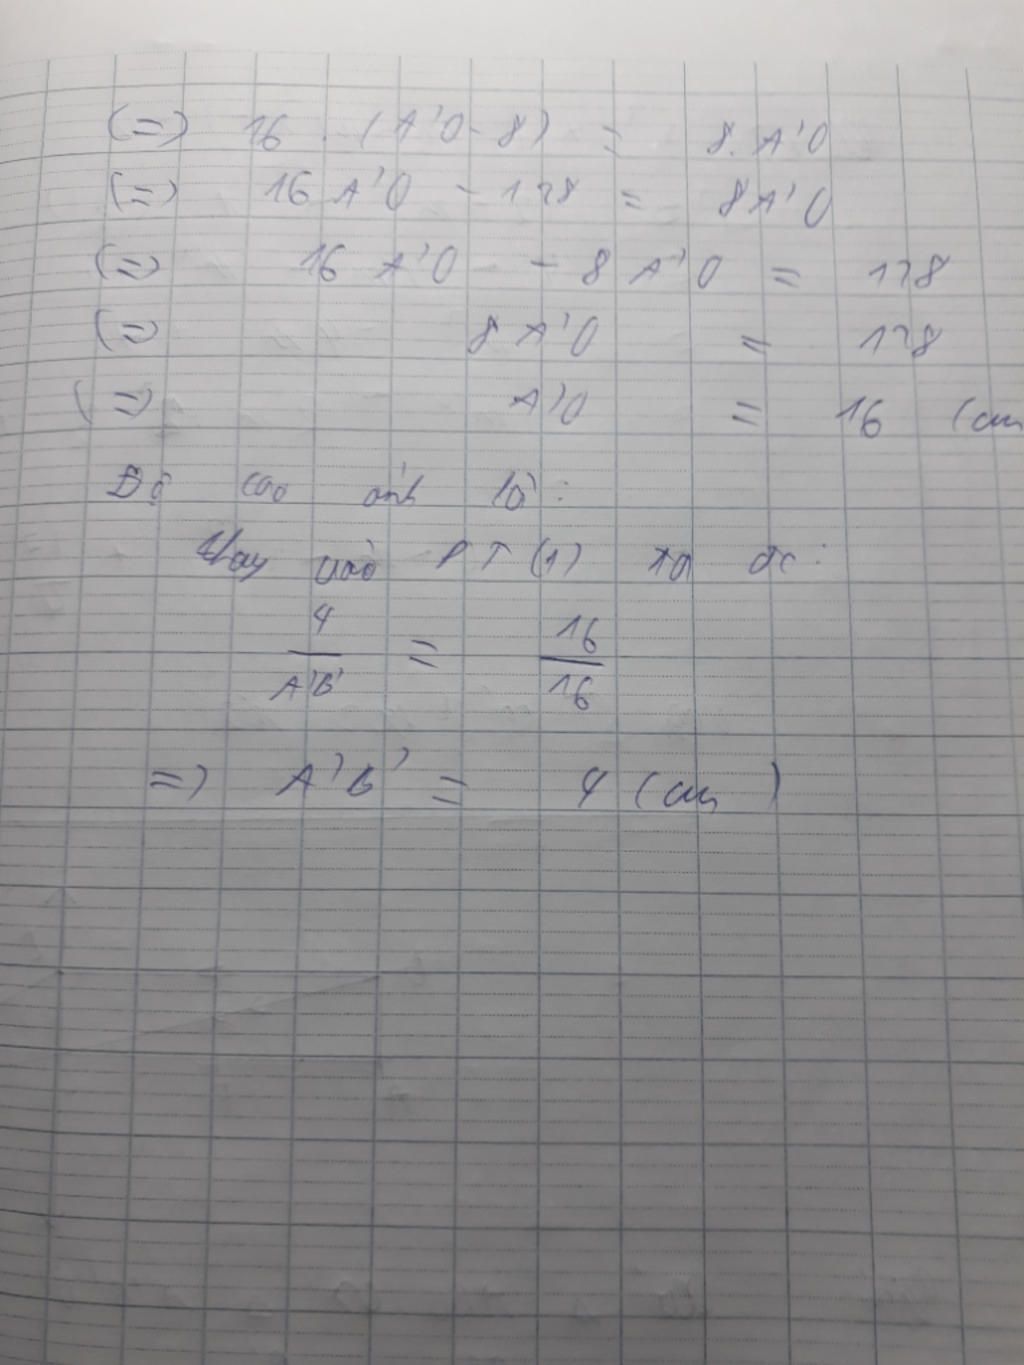 (=) 16 . (A'O - 8) = 8. A'O
(=) 16 A'O - 128 = 8A'O
(=) 16 A'O - 8 A'O = 128
(=) 8 A'O = 128
(=) A'O = 16 (cm
Độ cao ảnh là :
Thay vào PT (1) ta đc :
4/A'B' = 16/16
=) A'B' = 4 (cm)